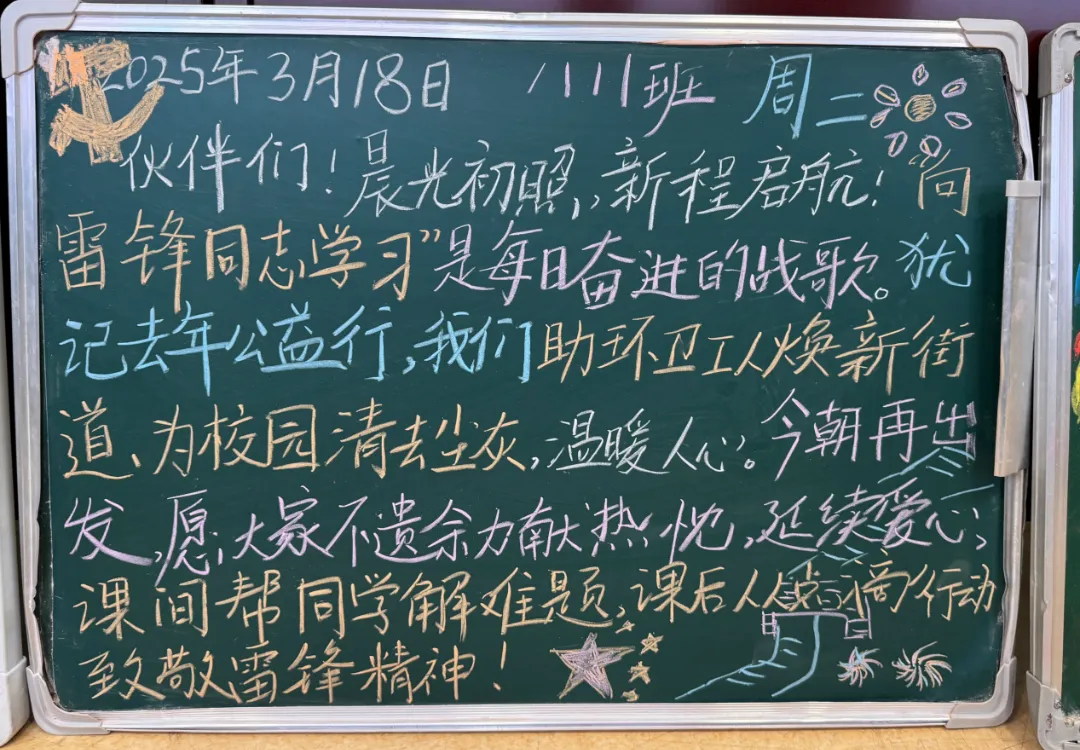 2025年3月18日 1111班 周二
伙伴们！晨光初照，新程启航！“向
雷锋同志学习”是每日奋进的战歌。犹
记去年公益行，我们助环卫工人焕新街
道、为校园清去尘灰，温暖人心。今朝再出
发，愿大家不遗余力献热忱，延续爱心，
课间帮同学解难题，课后从点滴行动
致敬雷锋精神！